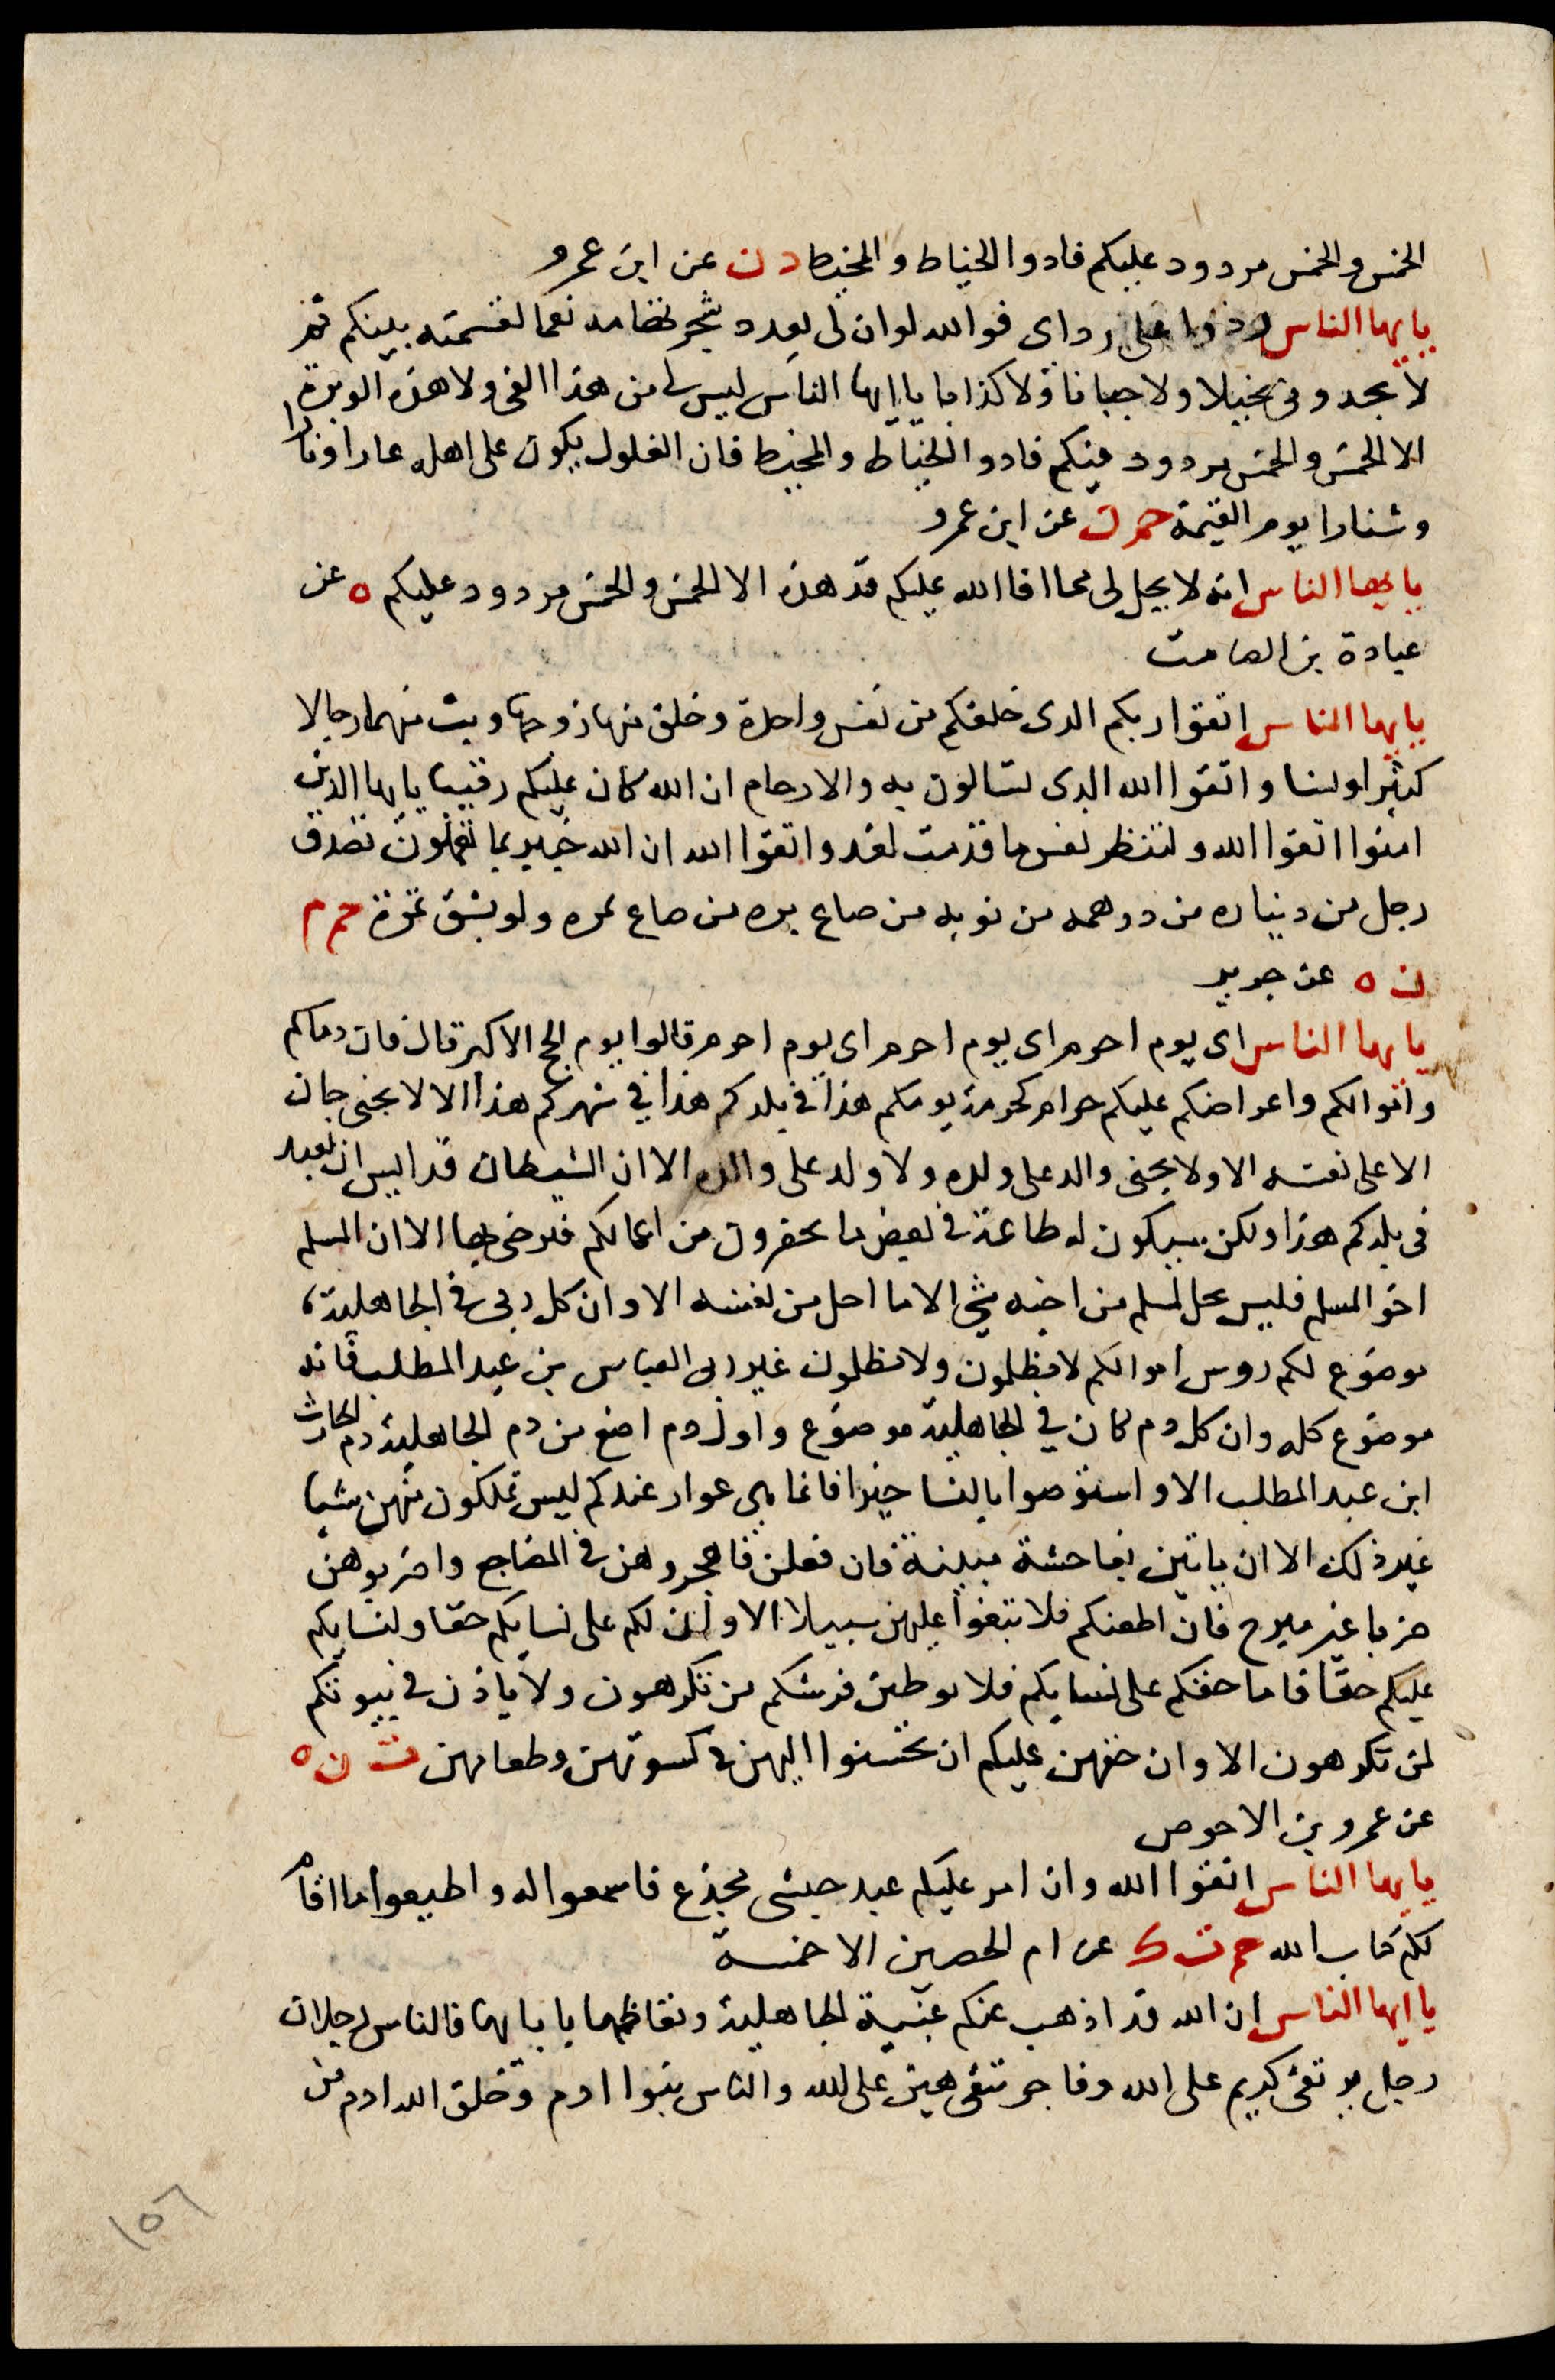 الخمس والخمس مردود عليكم فادوا الخياط والمخيط د ن عن ابن عمرو
يايها الناس ردوا على رداى فوالله لو ان لى بعدد شجر تهامه نعما لقسمته بينكم ثم
لا تجدونى بخيلا ولا جبانا ولا كذابا يا ايها الناس ليس لى من هذا الفى ولا هذه الوبرة
الا الخمس والخمس مردود فيكم فادوا الخياط والمخيط فان الغلول يكون على اهله عارا ونارا
وشنارا يوم القيمة حم ن عن ابن عمرو
يايها الناس انه لا يحل لى مما افا الله عليكم قدر هذه الا الخمس والخمس مردود عليكم ه عن
عبادة بن الصامت
يايها الناس اتقوا ربكم الذى خلقكم من نفس واحدة وخلق منها زوجها وبث منهما رجالا
كثيرا ونسا واتقوا الله الذى تسالون به والارحام ان الله كان عليكم رقيبا يايها الذين
امنوا اتقوا الله ولتنظر نفس ما قدمت لغد واتقوا الله ان الله خبير بما تعملون تصدق
رجل من ديناره من درهمه من ثوبه من صاع بره من صاع تمره ولو بشق تمرة حم م
ن ه عن جرير
يايها الناس اى يوم احرم اى يوم احرم اى يوم احرم قالوا يوم الحج الاكبر قال فان دماكم
واموالكم واعراضكم عليكم حرام كحرمة يومكم هذا فى بلدكم هذا فى شهركم هذا الا لا يجنى جان
الا على نفسه الا ولا يجنى والد على ولده ولا ولد على والده الا ان الشيطان قد ايس ان يعبد
فى بلدكم هذا ولكن سيكون له طاعة فى بعض ما تحقرون من اعمالكم فيرضى بها الا ان المسلم
اخو المسلم فليس يحل لمسلم من اخيه شى الا ما احل من نفسه الا وان كل ربى فى الجاهلية
موضوع لكم روس اموالكم لا تظلمون ولا تظلمون غير ربى العباس بن عبد المطلب فانه
موضوع كله وان كل دم كان فى الجاهلية موضوع واول دم اضع من دم الجاهلية دم الحارث
ابن عبد المطلب الا واستوصوا بالنسا خيرا فانما هى عوار عندكم ليس تملكون منهن شيا
غير ذلك الا ان ياتين بفاحشة مبينة فان فعلن فاهجروهن فى المضاجع واضربوهن
ضربا غير مبرح فان اطعنكم فلا تبغوا عليهن سبيلا الا وان لكم على نسايكم حقا ولنسايكم
عليكم حقا فاما حقكم على نسايكم فلا يوطين فرشكم من تكرهون ولا ياذن فى بيوتكم
لمن تكرهون الا وان حقهن عليكم ان تحسنوا اليهن فى كسوتهن وطعامهن ت ن ه
عن عمرو بن الاحوص
يايها الناس اتقوا الله وان امر عليكم عبد حبشى مجدع فاسمعوا له واطيعوا ما اقام
لكم كتاب الله حم ت ك عن ام الحصين الاحمسية
يا ايها الناس ان الله قد اذهب عنكم عبية الجاهلية وتعاظمها بابايها فالناس رجلان
رجل بر تقى كريم على الله وفاجر شقى هين على الله والناس بنوا ادم وخلق الله ادم من
١٥٦